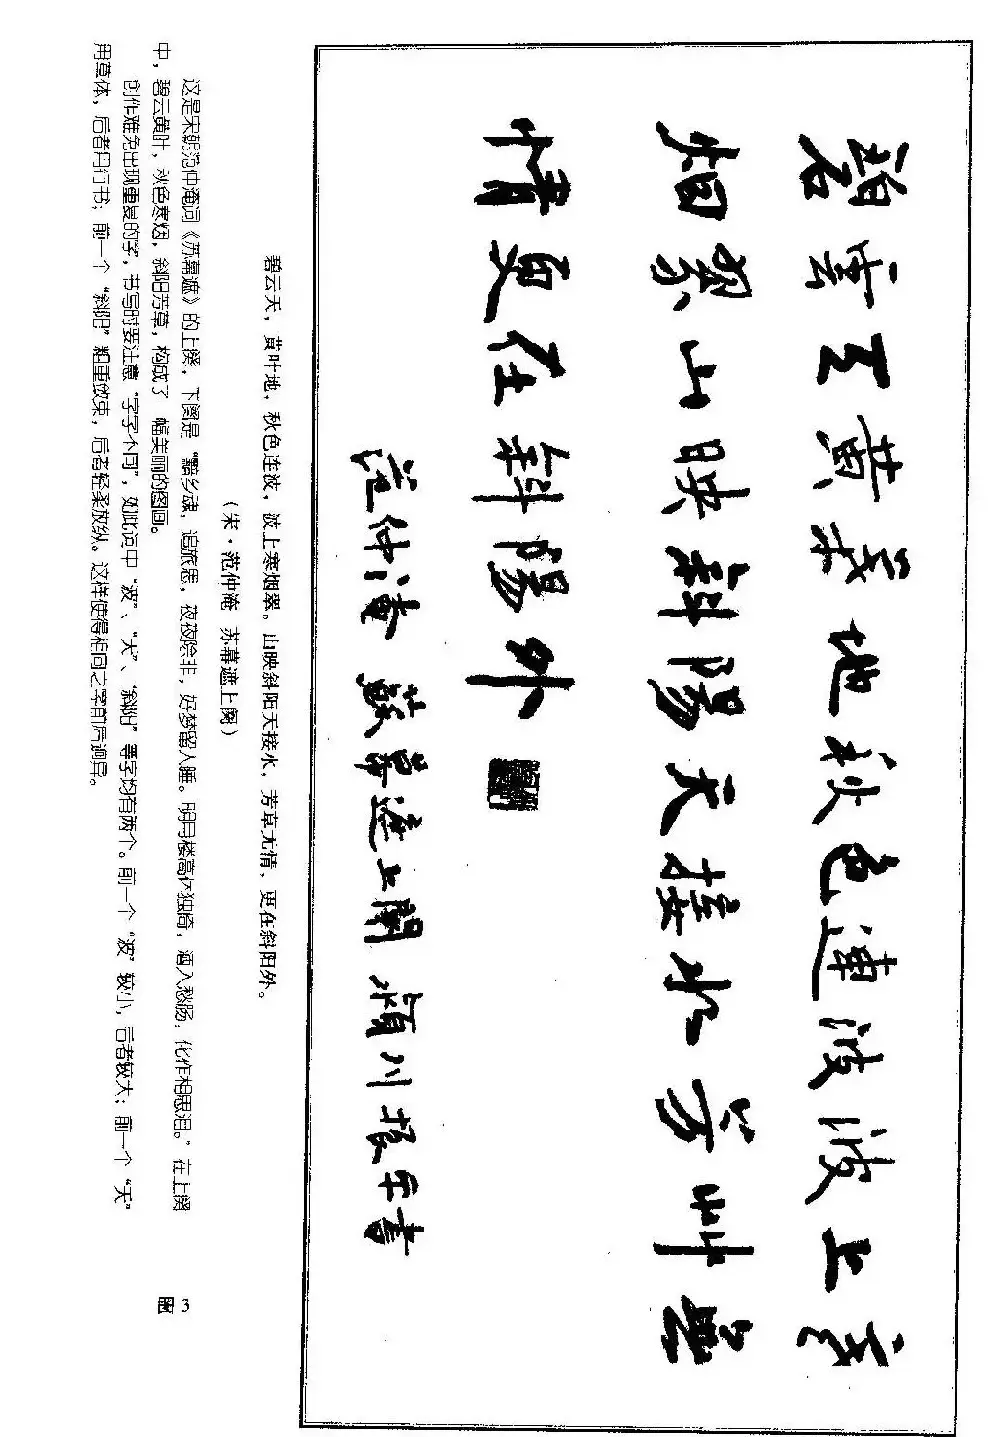 碧雲天黄葉地秋色連波波上寒
烟翠山映斜陽天接水芳艸無
情更在斜陽外
范仲淹 蘇幕遮上闋 潁川振宇書
碧云天，黄叶地，秋色连波，波上寒烟翠。山映斜阳天接水，芳草无情，更在斜阳外。
（宋·范仲淹 苏幕遮上阕）
这是宋朝范仲淹词《苏幕遮》的上阕，下阕是“黯乡魂，追旅思，夜夜除非，好梦留人睡。明月楼高休独倚，酒入愁肠，化作相思泪。”在上阕
中，碧云黄叶，秋色寒烟，斜阳芳草，构成了 幅美丽的图画。
创作难免出现重复的字，书写时要注意“字字不同”，如此词中“波”、“天”、“斜阳”等字均有两个。前一个“波”较小，后者较大；前一个“天”
用草体，后者用行书；前一个“斜阳”粗重敛束，后者轻柔放纵。这样使得相同之字前后迥异。
图 3